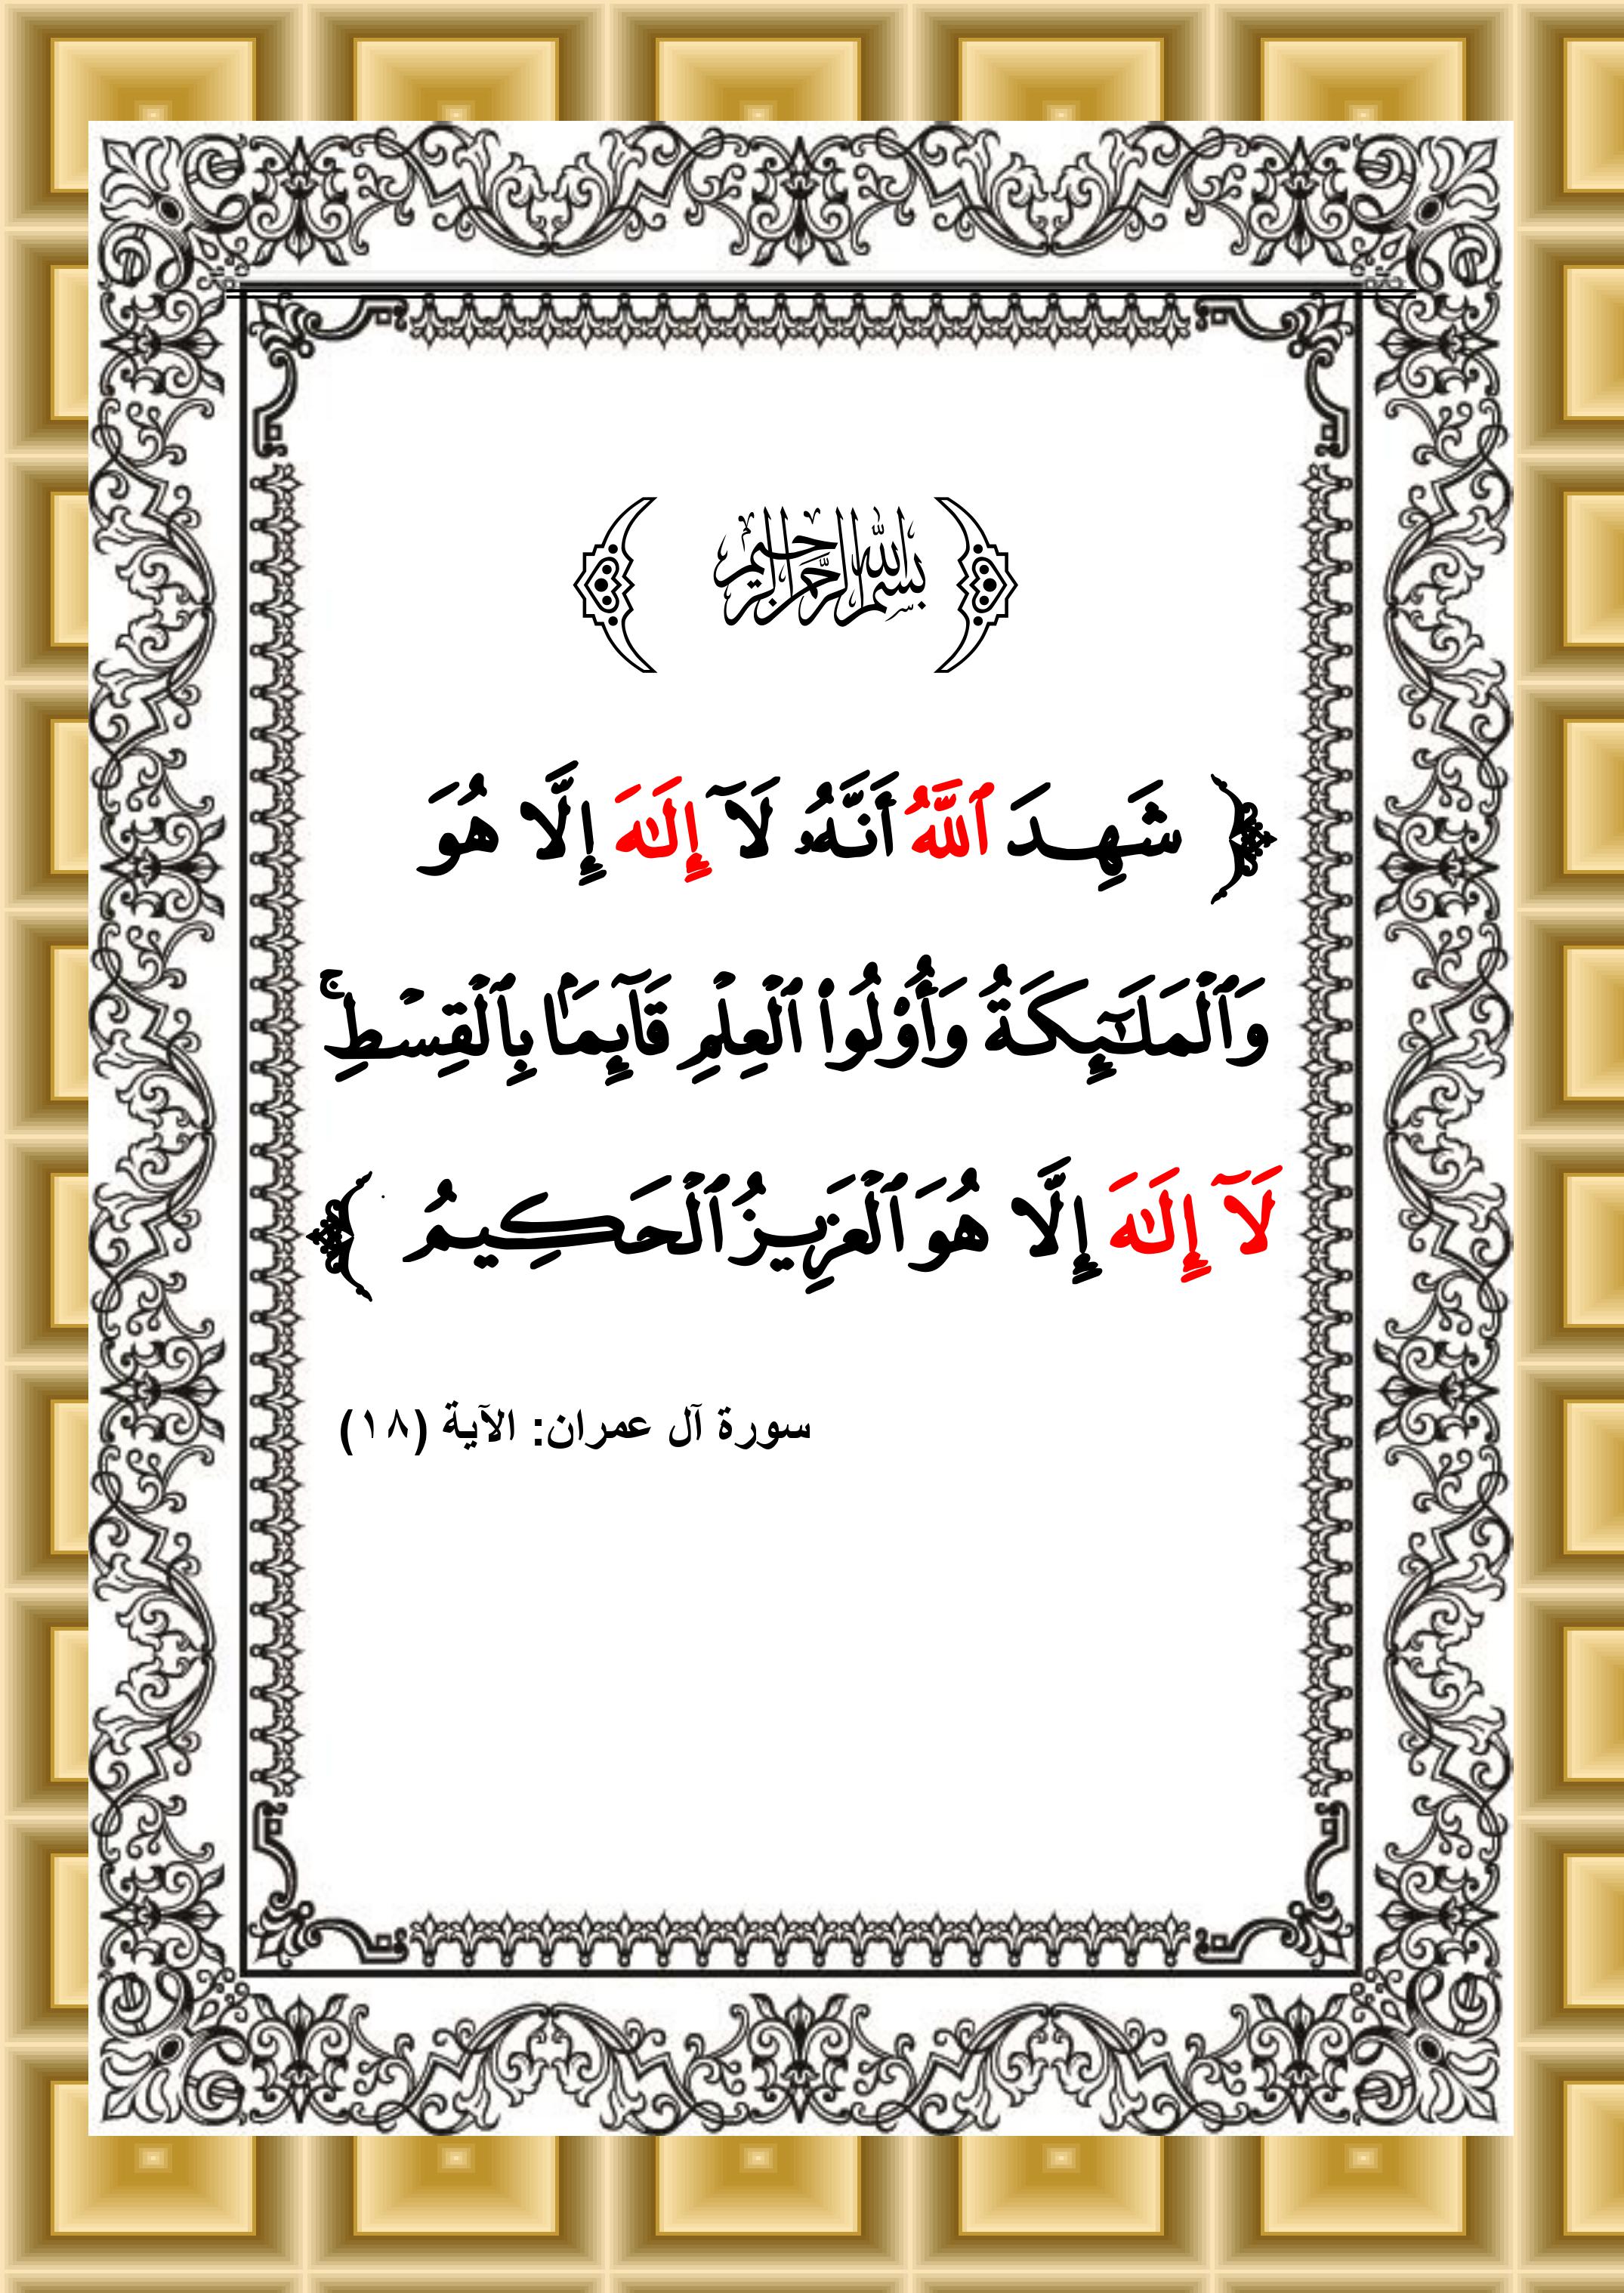 بسم الله الرحمن الرحيم
﴿ شَهِدَ ٱللَّهُ أَنَّهُۥ لَآ إِلَٰهَ إِلَّا هُوَ
وَٱلْمَلَٰٓئِكَةُ وَأُو۟لُوا۟ ٱلْعِلْمِ قَآئِمًۢا بِٱلْقِسْطِ ۚ
لَآ إِلَٰهَ إِلَّا هُوَ ٱلْعَزِيزُ ٱلْحَكِيمُ ﴾
سورة آل عمران: الآية (١٨)